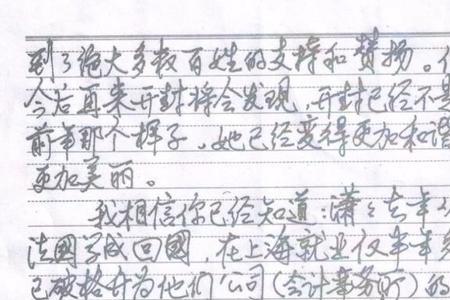 到了绝大多数百姓的支持和赞扬。
今后再来开封将会发现,开封已经不是
前年那个样子,她已经变得更加和谐
更加美丽。
我相信你已经知道:潇々去年
法国学成回國,在上海就业仅半年
已破格升为他们公司(会计事务所)的